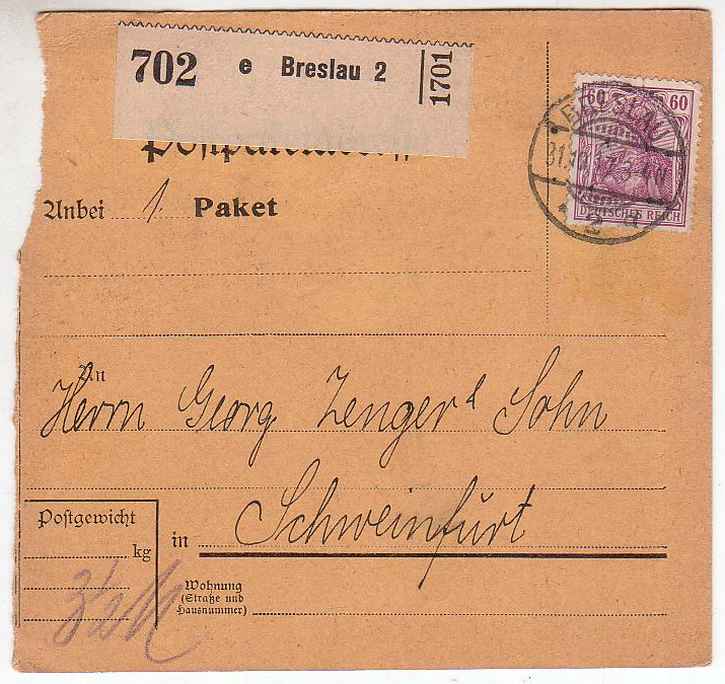 702 e Breslau 2 1701
60 60
BRESLAU
DEUTSCHES REICH
2
Anbei 1 Paket
An
Herrn Georg Zenger & Sohn
in Schweinfurt
Postgewicht
kg
3½ M
Wohnung
(Straße und
Hausnummer)